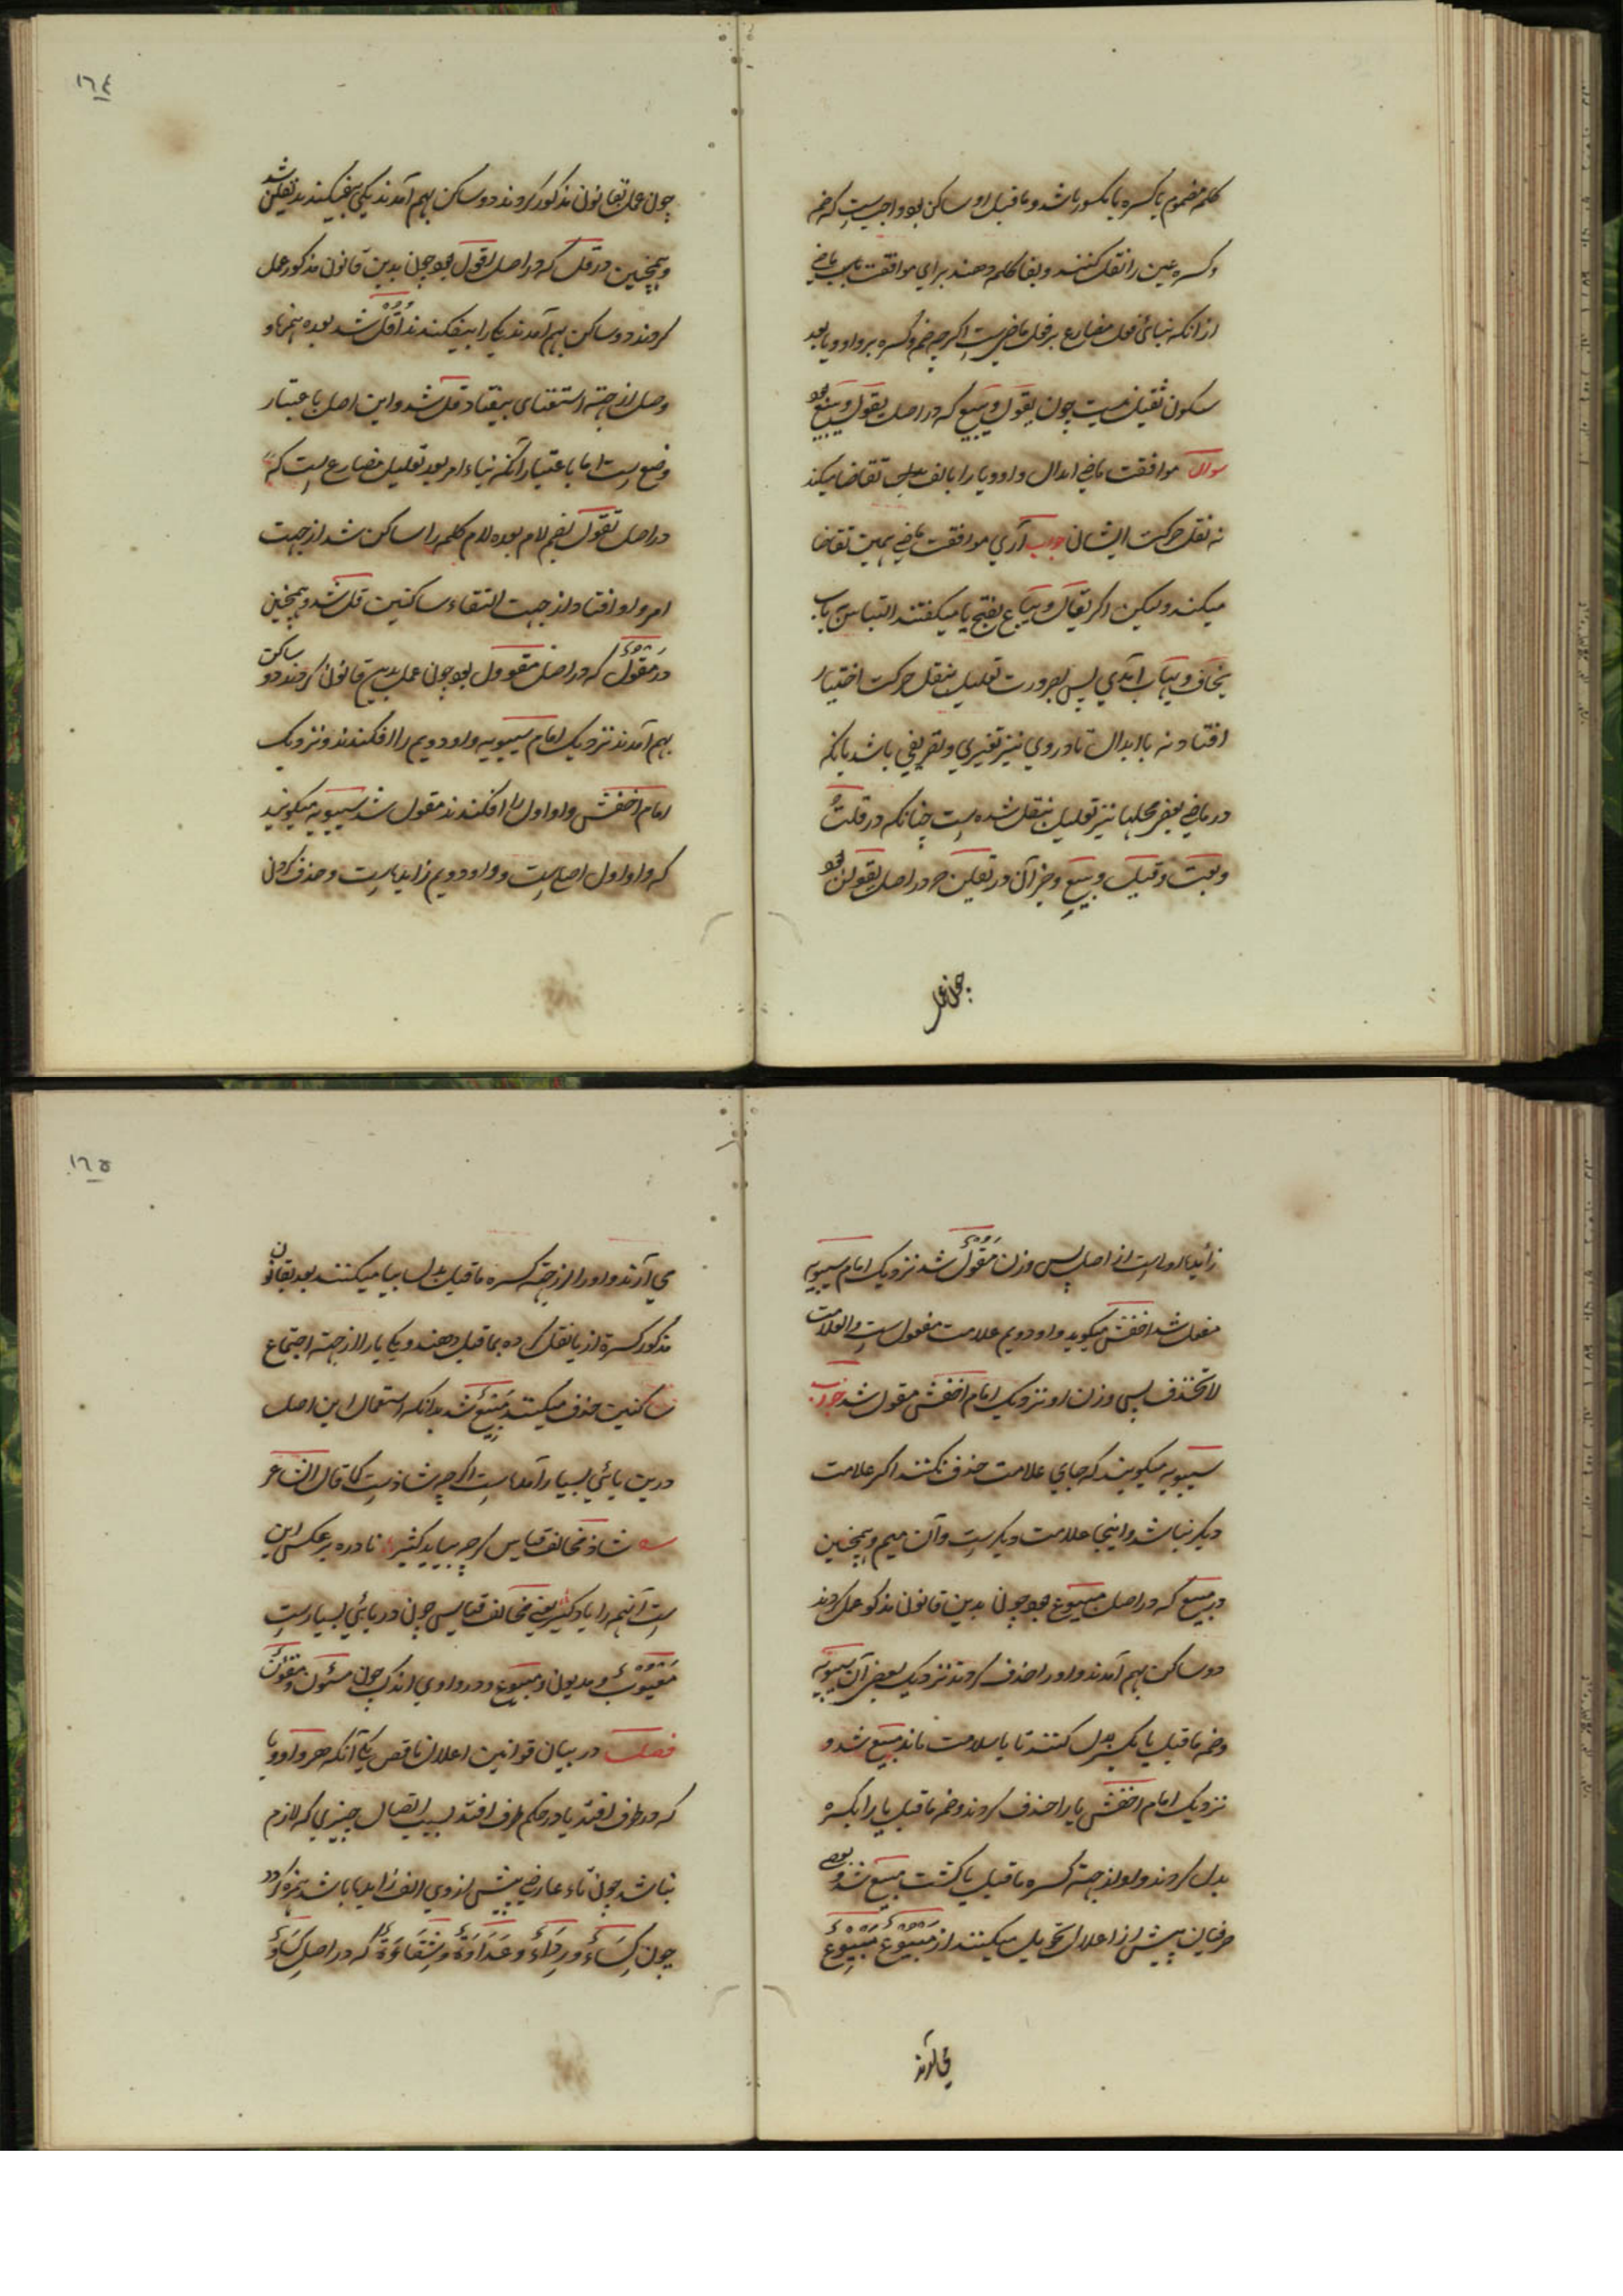 کلمه مضموم یا کسره یا مکسور باشد و ماقبل او ساکن بود واجبست که ضمه
و کسره عین را نقل کنند و بفا کلمه دهند برای موافقت باب ماضی
از انکه بنائی فعل مضارع بر فعل ماضیست اگرچه ضم و کسره بر واو و یا بعد
سکون ثقیل نیست چون یقول و یبیع که در اصل یقول و یبیع بود
سوال موافقت ماضی ابدال واو و یا را بالف تقاضا میکند
نه نقل حرکت ایشان جواب آری موافقت ماضی همین تقاضا
میکند ولیکن اگر یقال و یباع بفتح یا میگفتند التباس باب
یخاف و یهاب آمدی پس بضرورت تعلیل بنقل حرکت اختیار
افتاد نه با ابدال تا در وی نیز تغیری و تفریقی باشد بانکه
در ماضی بعض محلها نیز تعلیل بنقل شده است چنانکه در قلت
وبعت وقیل وبیع و جز آن در تقلن در اصل یقولن بود
چون عمل
١٦٤
چون عمل بقانون مذکور کردند دو ساکن بهم آمدند یکی بیفکندند تقلن شد
و همچنین در قل که در اصل اقول بود چون بدین قانون مذکور عمل
کردند دو ساکن بهم آمدند یکی را بیفکندند اقل شد بعده همزه
وصل از جهت استغنای بیفتاد قل شد و این اصل باعتبار
وضع است اما باعتبار آنکه بناء امر بعد تعلیل مضارع است که
در اصل تقول بضم لام بوده لام کلمه را ساکن شد از جهت
امر واو افتاد از جهت التقاء ساکنین قل شد و همچنین
در مقول که در اصل مقوول بود چون عمل بدین قانون کردند دو ساکن
بهم آمدند نزدیک امام سیبویه واو دویم را افکندند و نزدیک
امام اخفش واو اول را افکندند مقول شد سیبویه میگویند
که واو اول اصل است و واو دویم زایداست و حذف کردن
زاید اولی است از اصل پس وزن مقول شد نزدیک امام سیبویه
مفعل شد اخفش میگوید واو دویم علامت مفعول است والعلامت
لاتحذف پس وزن او نزدیک امام اخفش مقول شد جواب
سیبویه میگویند که جای علامت حذف نکنند اگر علامت
دیگر نباشد و اینجا علامت دیگرست وآن میم و همچنین
در مبیع که در اصل مبیوع بود چون بدین قانون مذکور عمل کردند
دو ساکن بهم آمدند واو را حذف کردند نزدیک بعض آن سیبویه
وضمه ماقبل یا بکسر بدل کنند تا یا سلامت ماند مبیع شد و
نزدیک امام اخفش یا را حذف کردند وضمه ماقبل یا را بکسره
بدل کردند واو از جهة کسره ماقبل یا گشت مبیع شد و بعضی
صرفیان پیش از اعلال تحویل میکنند از مبیوع مبیوع
می آرند
١٦٥
می آرند و واو را از جهة کسره ماقبل بدل بیا میکنند بعد بقانون
مذکور کسره از یا نقل کرده بماقبل دهند و یکی یا را از جهة اجتماع
ساکنین حذف میکنند مبیع شد بدانکه استعمال این اصل
درین یائی بسیار آمده است اگرچه شاذست کما قال الشاعر
شاذ مخالف قیاس گرچه بیاید کثیر نادره بر عکس این
است آنهمه را یاد گیر یعنی مخالف قیاس چون در یائی بسیارست
معیوب و مدیون و مبیوع و در واوی اندک چون و مقوول
فصل در بیان قوانین اعلال ناقص یکی آنکه هر واو و یا
که در طرف افتد یا در حکم طرف افتد بسبب اتصال چیزی که لازم
نباشد چون تاء عارضی پیش از وی الف زاید باشد همزه گردد
چون کساء و رداء و عداوة و شقاوة که در اصل کساو